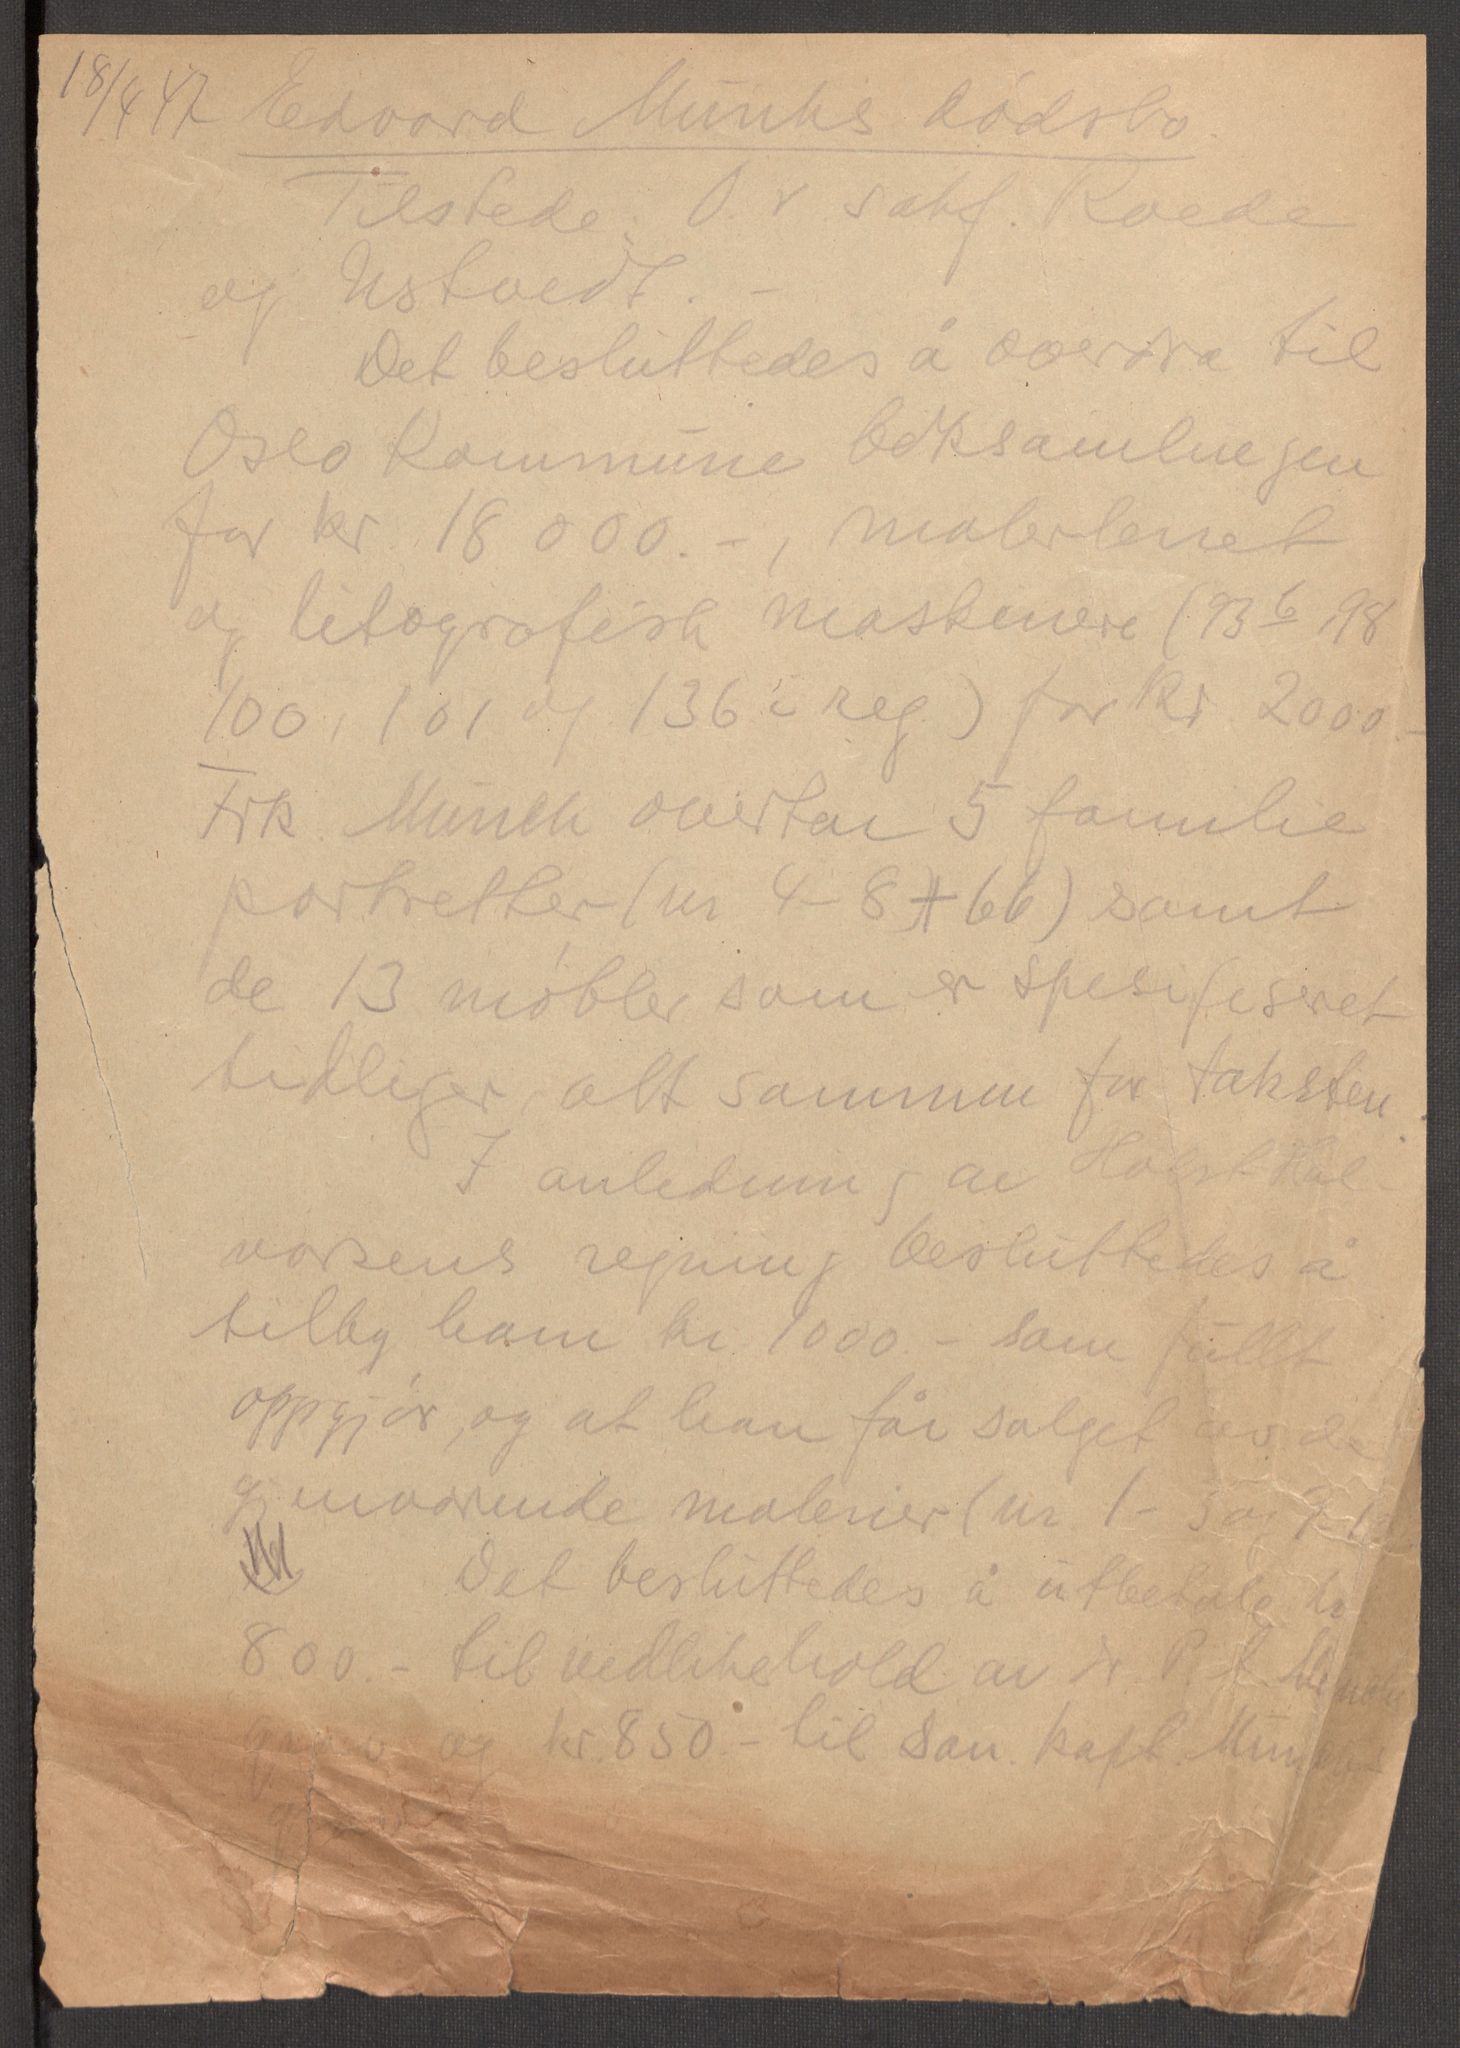 18/4 47 Edvard Munchs dødsbo.
Tilstede: O. r. sakf. Roede
og Ustvedt. –
Det besluttedes å overdra til
Oslo Kommune boksamlingen
for kr. 18 000.–, malerlerret
og litografisk maskineri (93 b, 98
100, 101 og 136 i reg.) for kr 2000.–
Frk. Munch overtar 5 familie
portretter (nr 4–8 + 66) samt
de 13 møbler som er spesifiseret
tidliger, alt sammen for taksten.
I anledning av Holst Hal-
vorsens regning besluttedes å
tilby ham kr. 1000.– som fullt
oppgjør, og at han får salget av de
gjenværende malerier (nr 1–3 og 9-
Det besluttedes å utbetale kr
800.– til vedlikehold av dr. P. A. Munchs
grav og kr. 850.– til san. kapt. Munchs
grav